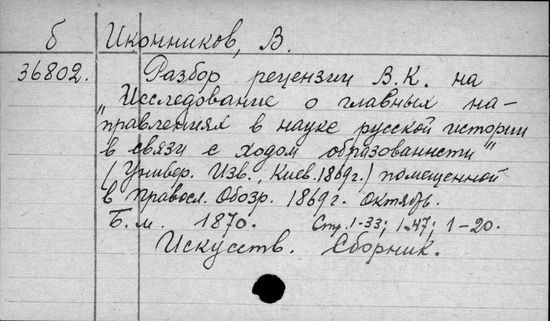 б Иконников, В.
36802. Разбор рецензии В.К. на
"Исследование о главных на-
правлениях в науке русской истории
в связи с ходом образованности"
(Универ. Изв., Киев. 1869г.) помещенной
в Правосл. Обозр. 1869г. Октябрь.
Б. м. 1870. Стр. 1-33; 1-47; 1-20.
Искусств. Сборник.